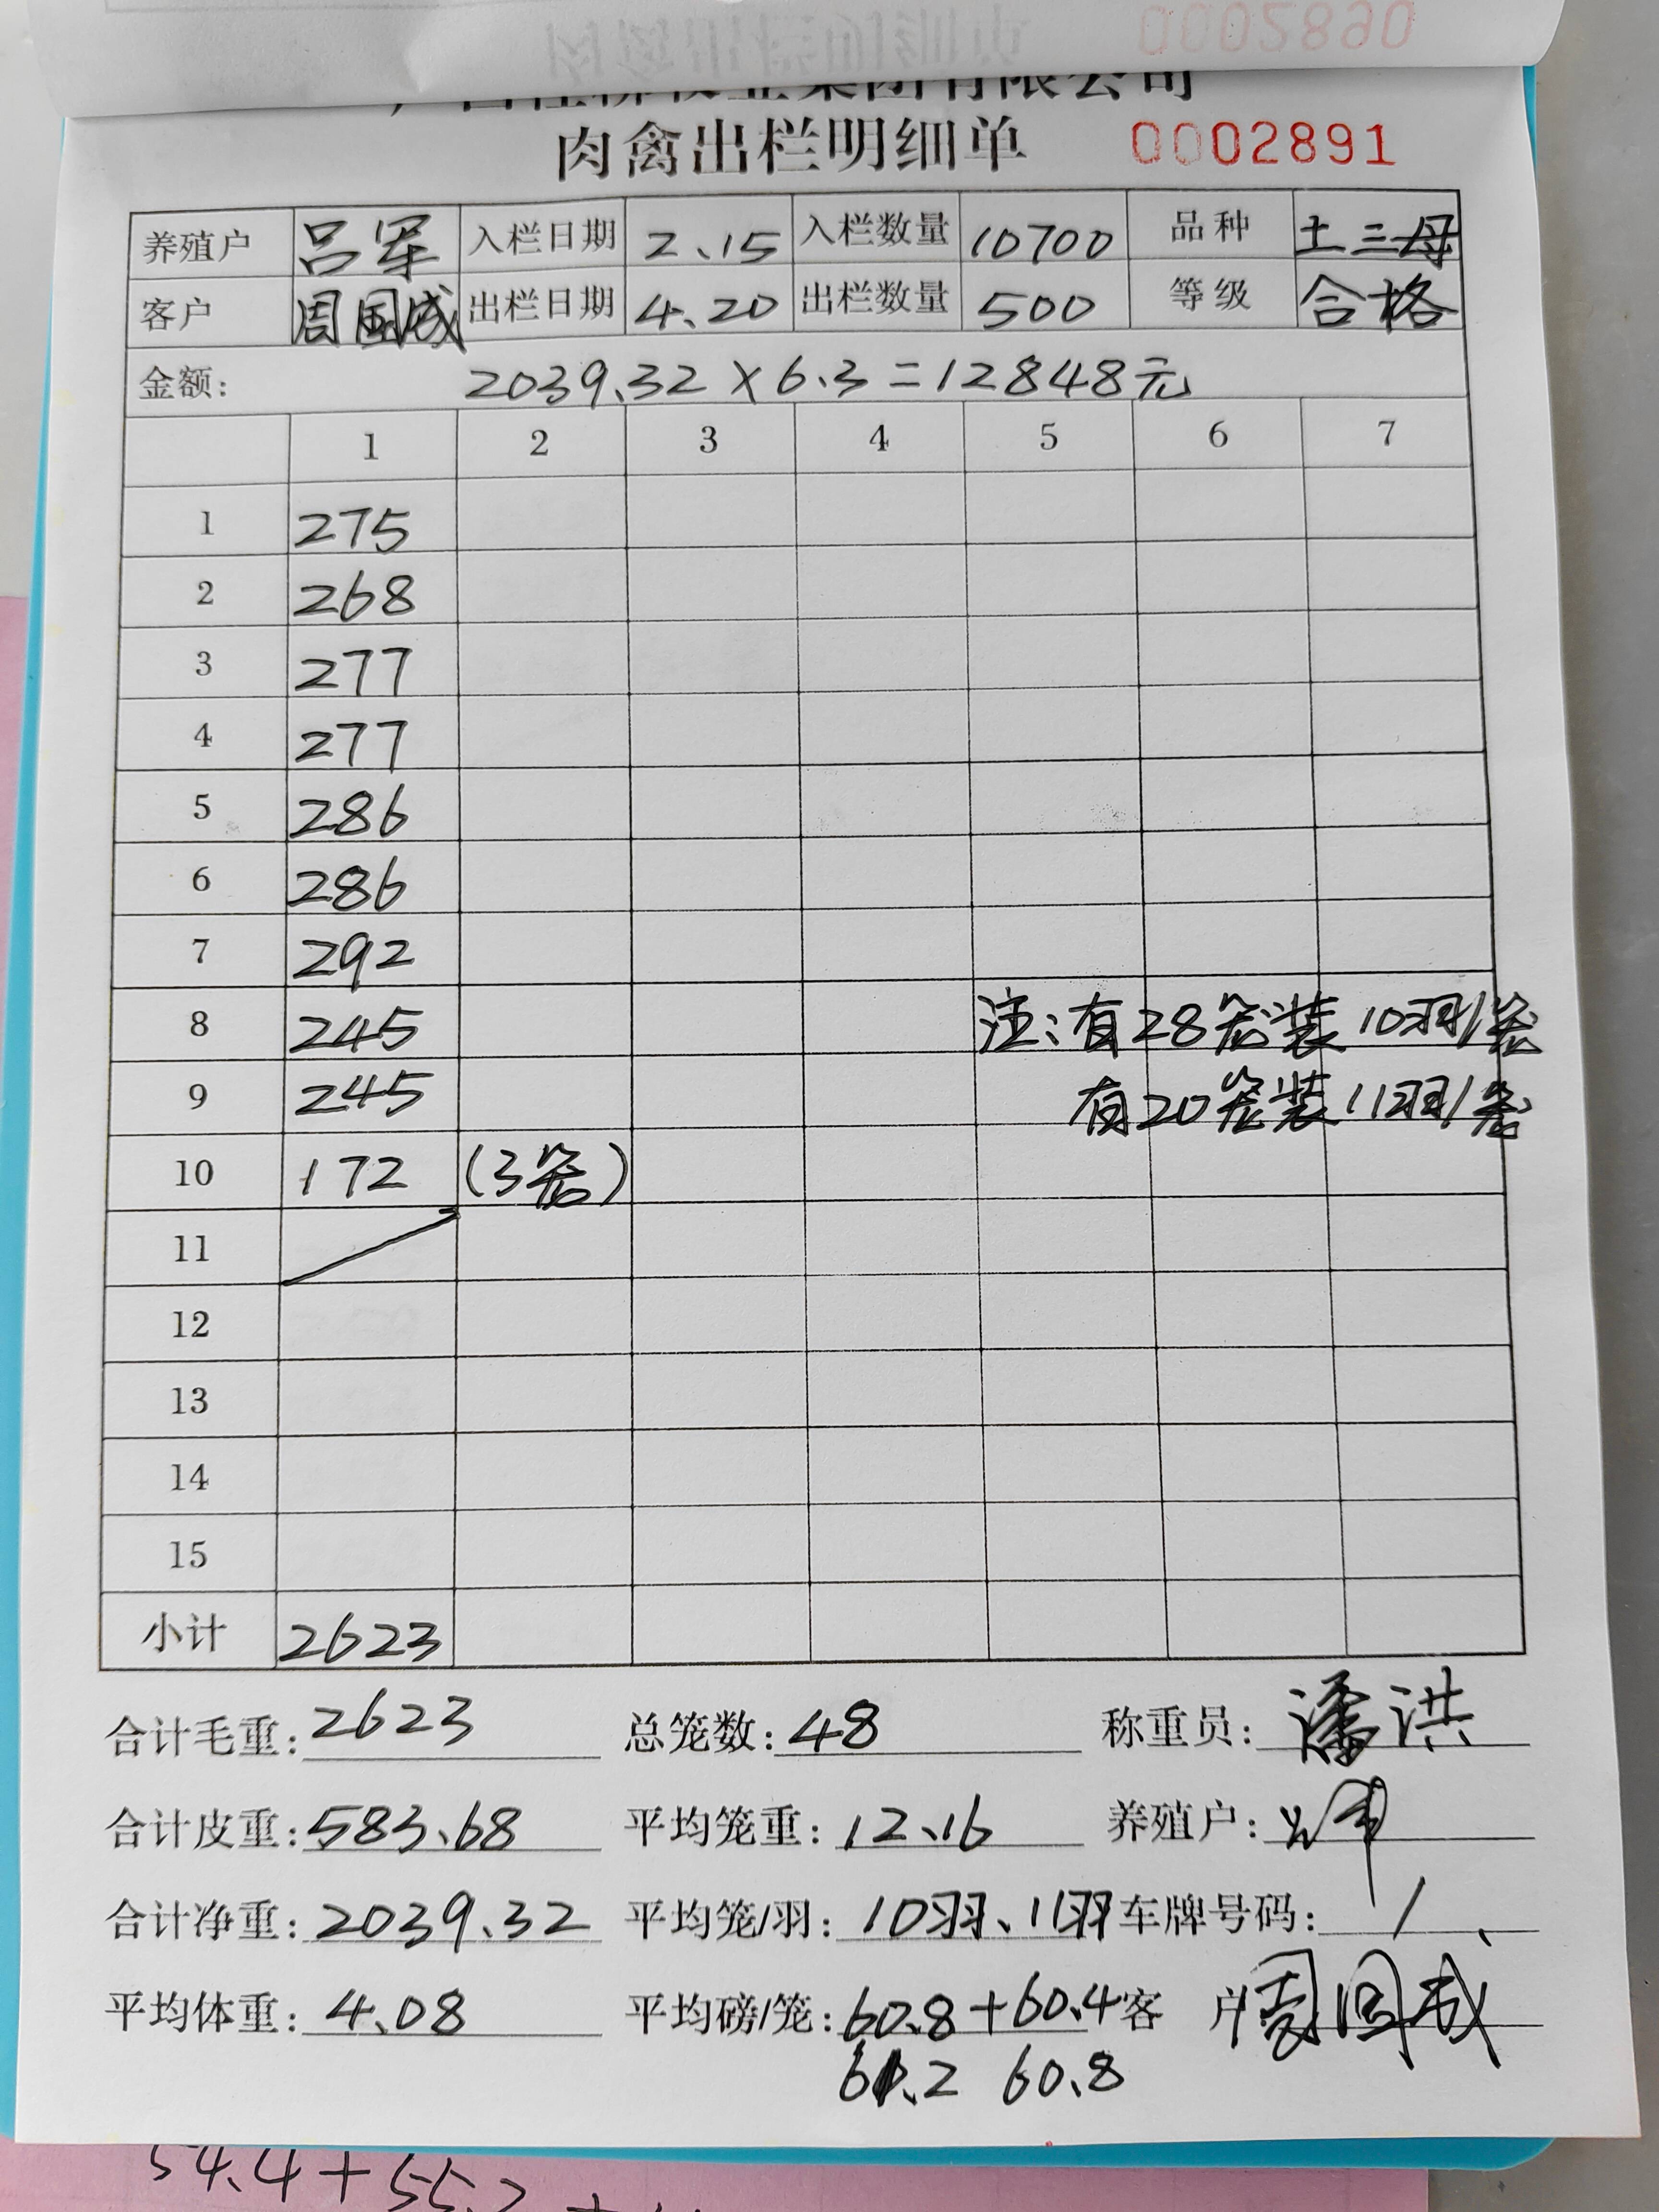 集团有限公司
肉禽出栏明细单 0002891
养殖户 吕军 入栏日期 2.15 入栏数量 10700 品种 土三母
客户 周国成 出栏日期 4.20 出栏数量 500 等级 合格
金额: 2039.32×6.3=12848元
1 2 3 4 5 6 7
1 275
2 268
3 277
4 277
5 286
6 286
7 292
8 245 注:有28笼装10羽/笼
9 245 有20笼装11羽/笼
10 172 (3笼)
11
12
13
14
15
小计 2623
合计毛重: 2623 总笼数: 48 称重员: 潘洪
合计皮重: 583.68 平均笼重: 12.16 养殖户:
合计净重: 2039.32 平均笼/羽: 10羽、11羽 车牌号码: /
平均体重: 4.08 平均磅/笼: 60.8+60.4 客户 周国成
61.2 60.8
54.4+55.2